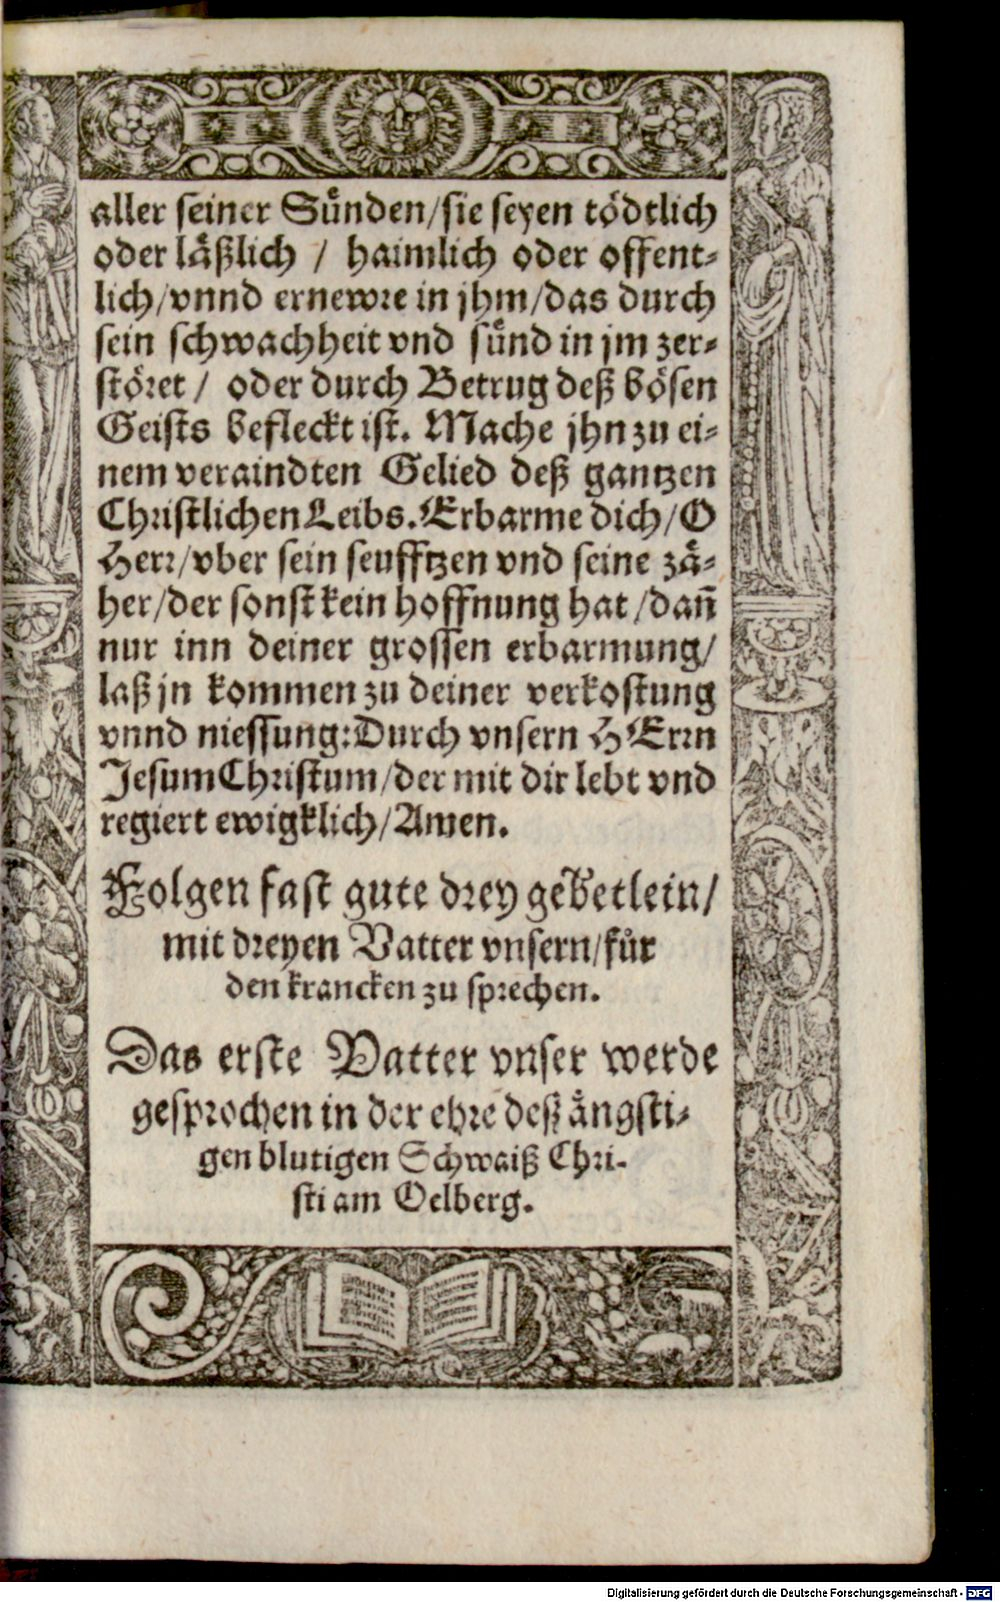 aller seiner Sůnden/sie seyen tödtlich
oder läßlich / haimlich oder offent-
lich/vnnd ernewre in jhm/das durch
sein schwachheit vnd sůnd in jm zer-
störet / oder durch Betrug deß bösen
Geists befleckt ist. Mache jhn zu ei-
nem veraindten Gelied deß gantzen
Christlichen Leibs. Erbarme dich/O
Herr/vber sein seufftzen vnd seine zä-
her/der sonst kein hoffnung hat/dañ
nur inn deiner grossen erbarmung/
laß jn kommen zu deiner verkostung
vnnd niessung: Durch vnsern HErrn
Jesum Christum/der mit dir lebt vnd
regiert ewigklich/Amen.
Folgen fast gute drey gebetlein/
mit dreyen Vatter vnsern/für
den krancken zu sprechen.
Das erste Vatter vnser werde
gesprochen in der ehre deß ängsti-
gen blutigen Schwaiß Chri-
sti am Oelberg.
Digitalisierung gefördert durch die Deutsche Forschungsgemeinschaft - DFG